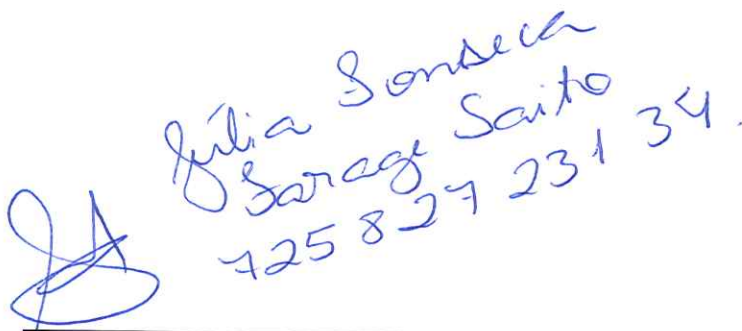 Júlia Fonseca
Farage Saito
725 827 231 34.